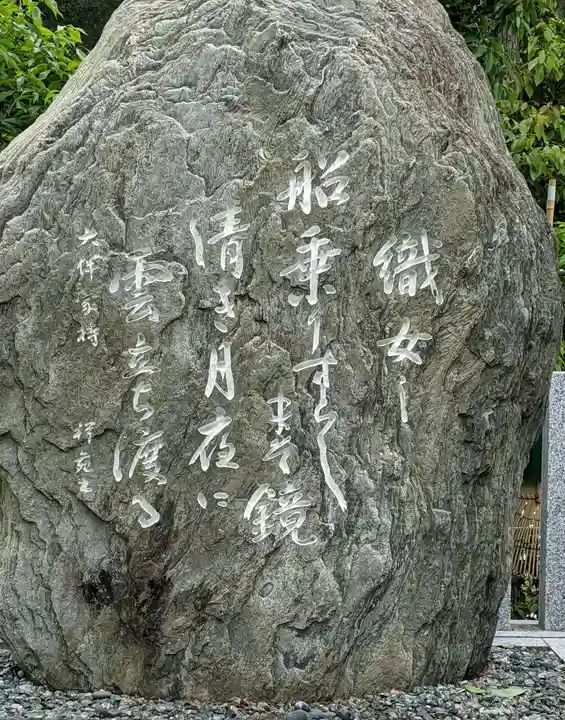 織女し
船乗りすらし
真そ鏡
清き月夜に
雲立ち渡る
大伴家持